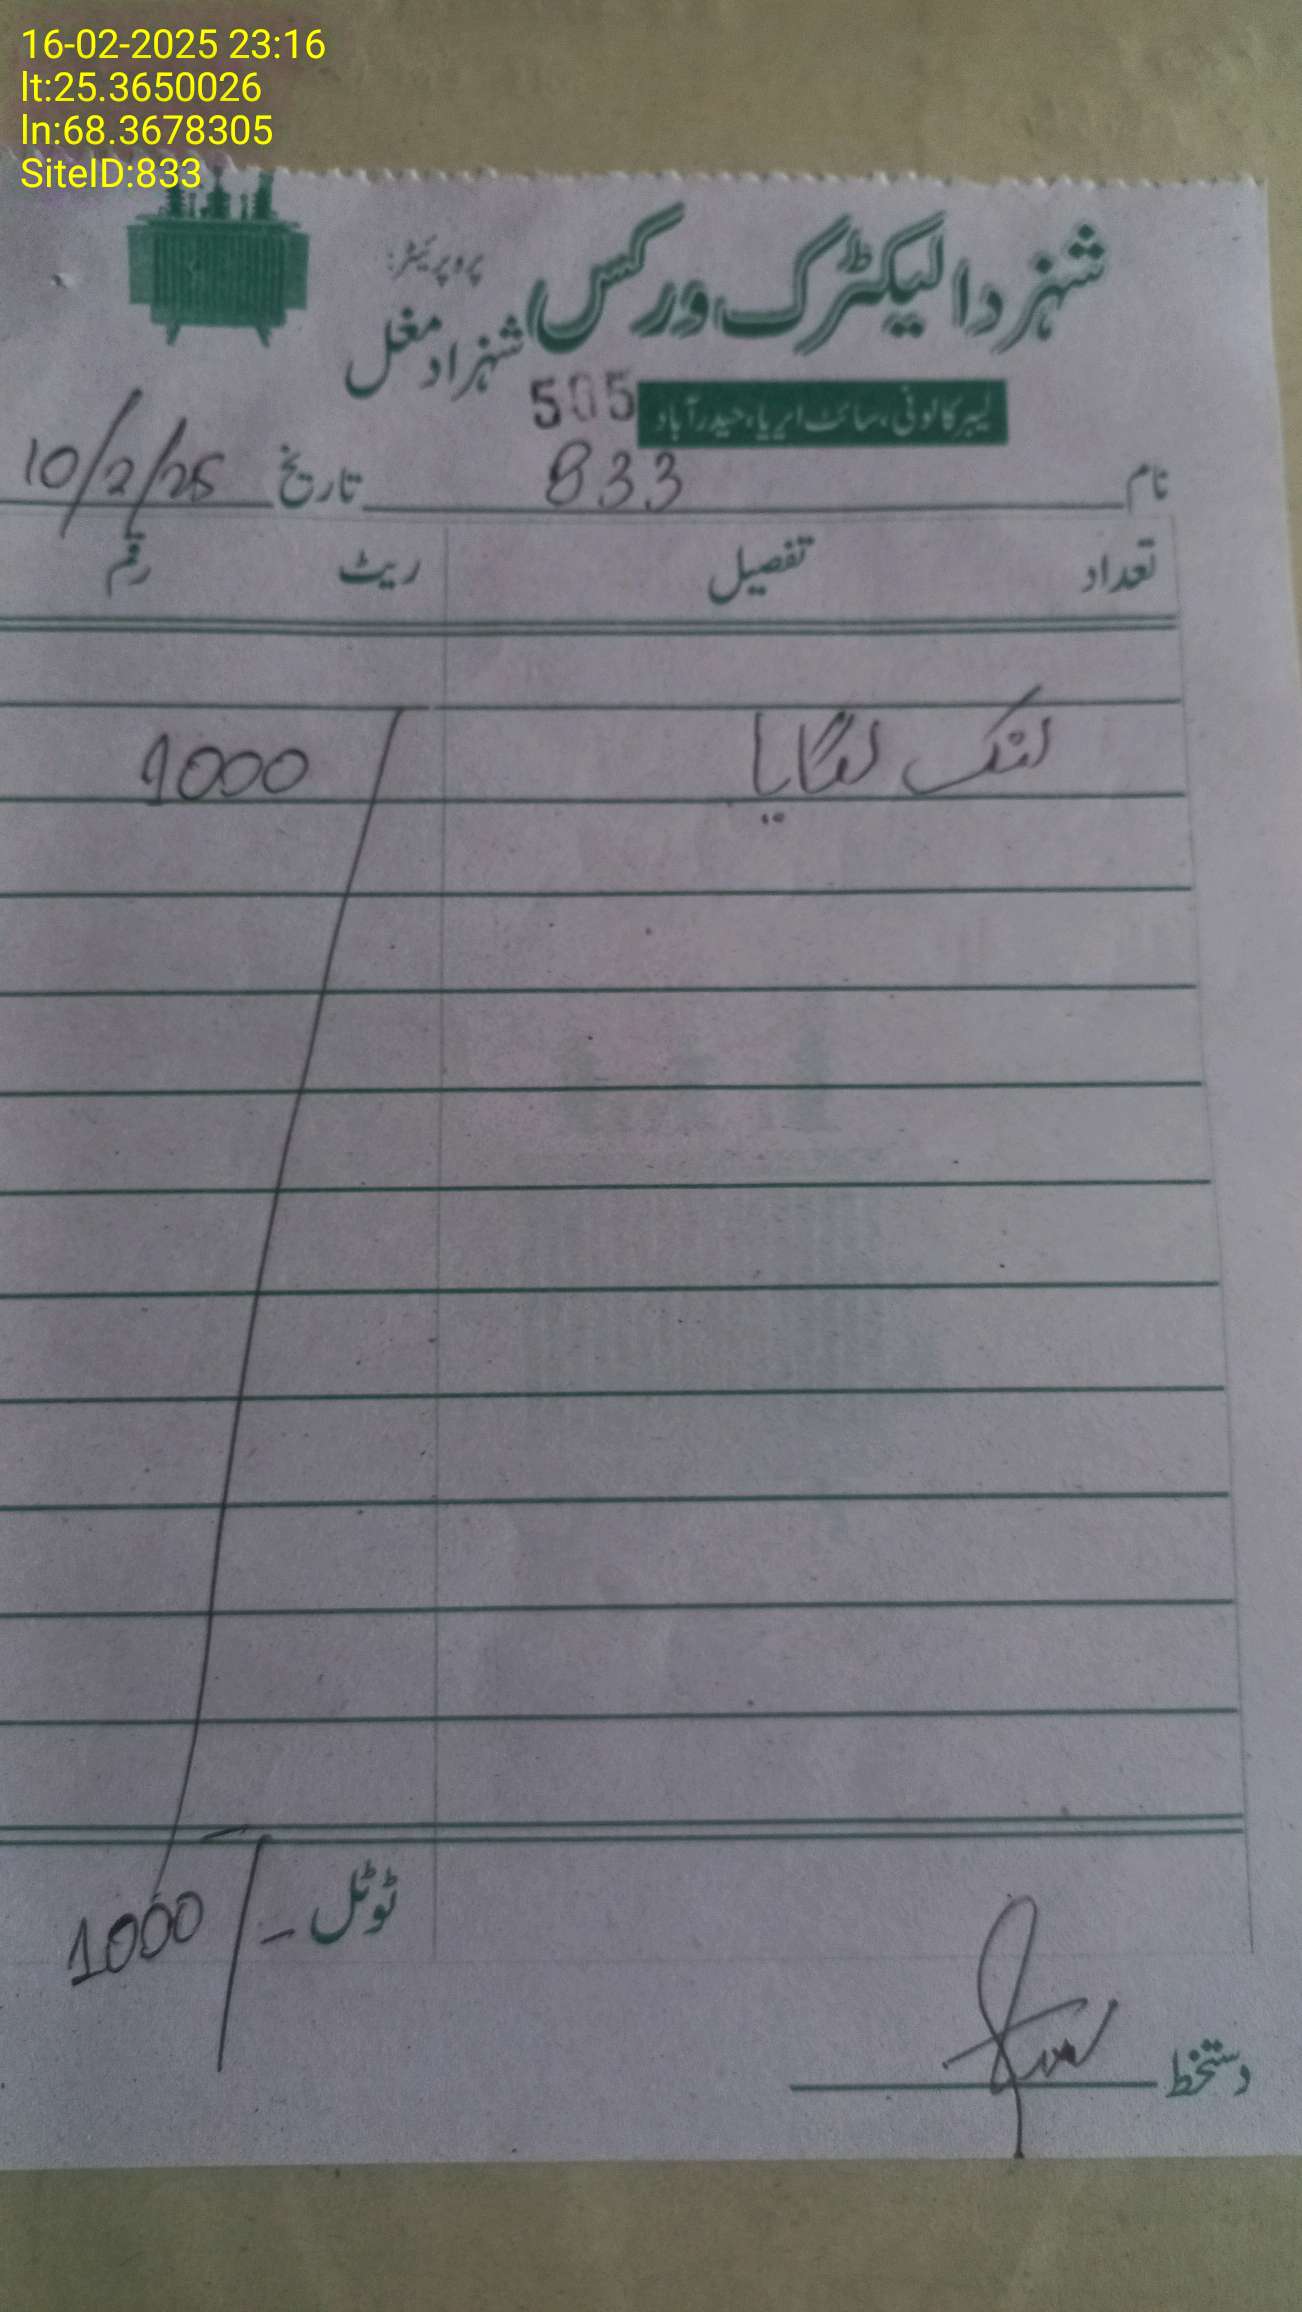 16-02-2025 23:16
lt:25.3650026
ln:68.3678305
SiteID:833
شہزاد الیکٹرک ورکس
پروپرائیٹر:
شہزاد مغل
لیبر کالونی، سائٹ ایریا، حیدرآباد
505
نام 833 تاریخ 10/2/25
تعداد تفصیل ریٹ رقم
لنک لگایا 1000
ٹوٹل 1000
دستخط